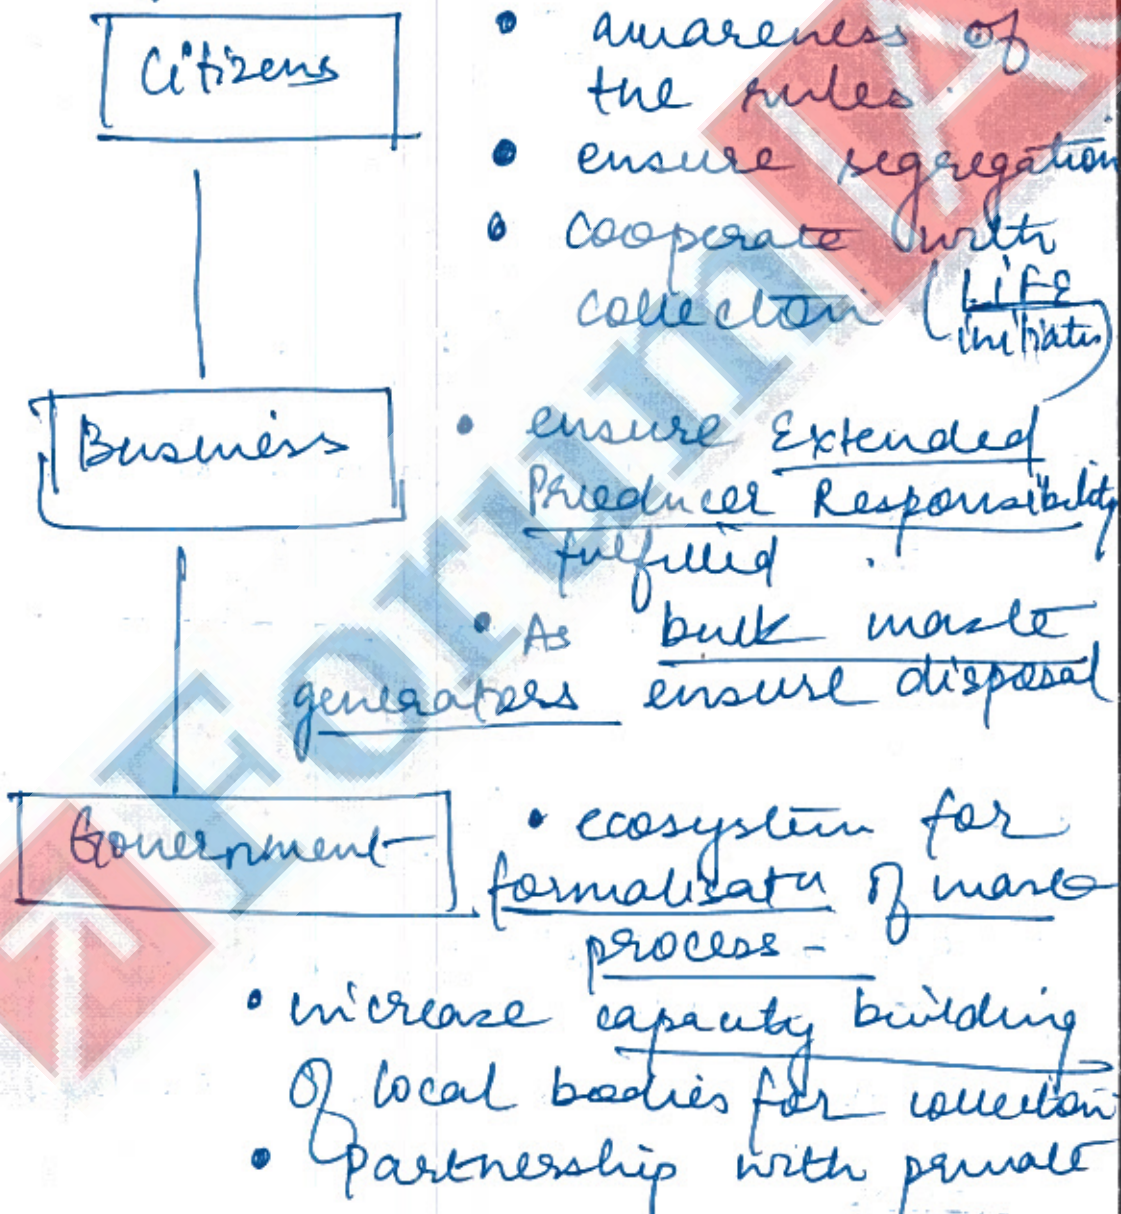 Citizens
• awareness of
the rules.
• ensure segregation
• cooperate with
collection (LiFE
initiatv)
Business
• ensure Extended
Producer Responsibility
fulfilled.
• As bulk waste
generators ensure disposal
Government
• ecosystem for
formalisatn of waste
process -
• increase capacity building
of local bodies for collection
• Partnership with private
Forum IA